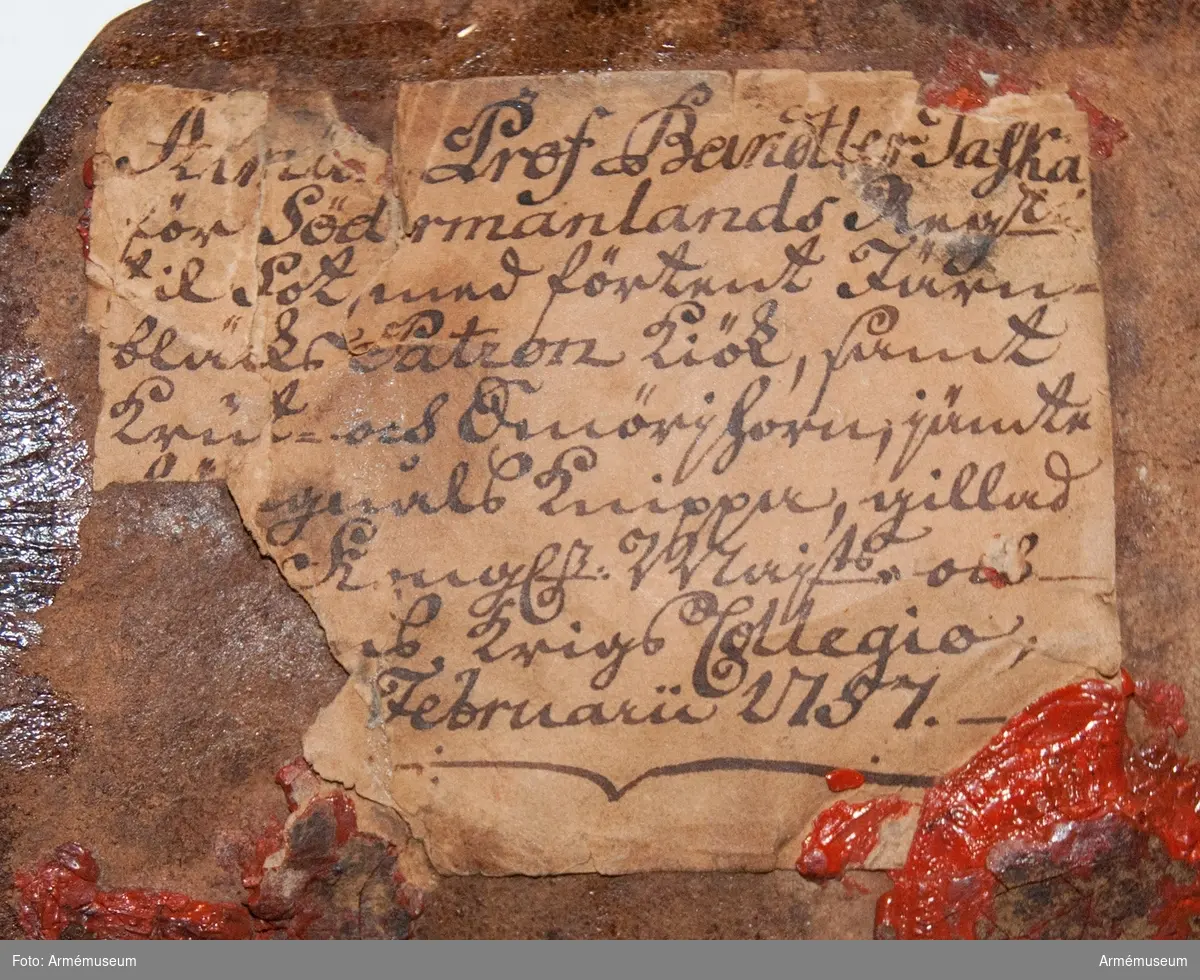 Prof Bandtler Taska
för Södermanlands Reg:te
til Fot, med förtent Järn-
bläcks Patron Kiök, samt
Krut- och Smörjhorn, jämte
Knippa, gillad
Kongl. Maijts och
Krigs Collegio,
Februarii 1757. —
Foto: Armémuseum
Armémuseum